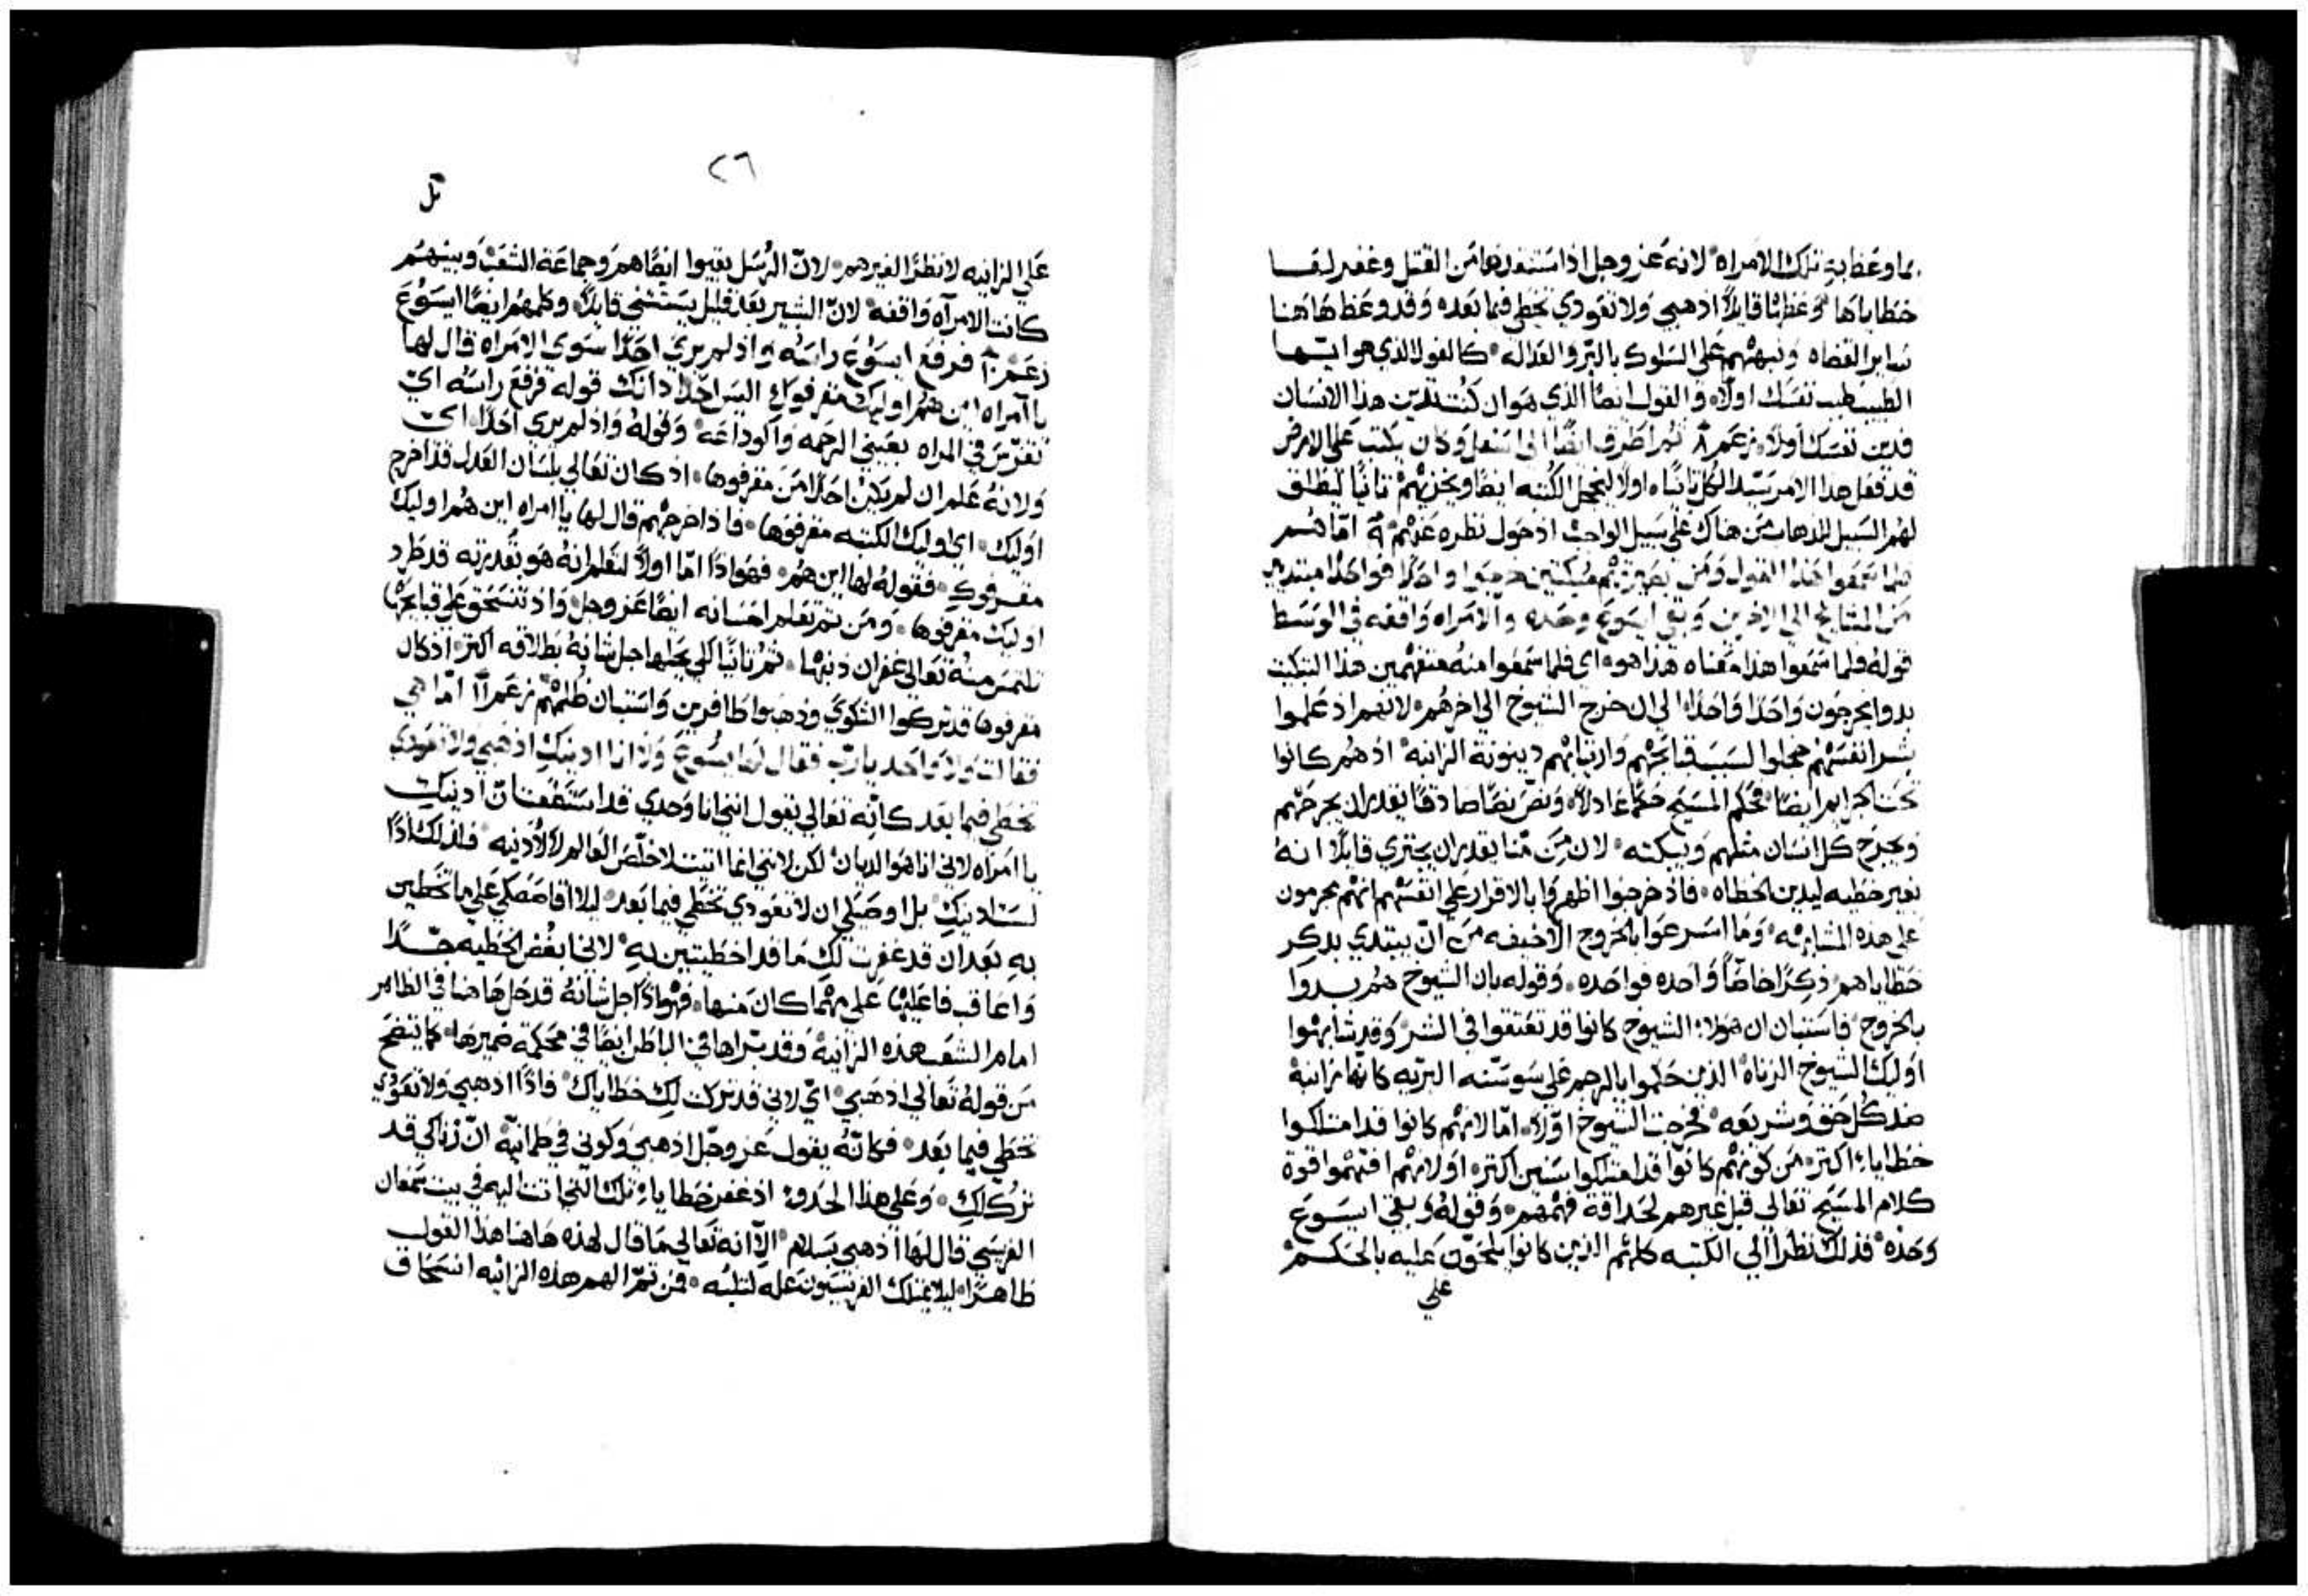 بما وعظ به تلك الامراه لانه عز وجل اذ استنقدها من القتل وغفر لها
خطاياها وعظها قايلًا اذهبي ولا تعودي تخطي فيما بعده وقد وعظ هاهنا
ساير القضاه ونبههم على السلوك بالبر والعداله كالقول الذي هو ايها
الطبيب طبب نفسك اولًا والقول ايضًا الذي هو ان كنت تدين هذا الانسان
فدين نفسك اولًا زعم ٨ ثم اطرق ايضًا الى اسفل وكان يكتب على الارض
قد فعل هذا الامر سيد الكل ثانيًا اولًا ليخجل الكتبه ايضًا ويخزيهم ثانيًا ليطلق
لهم السبيل للذهاب من هناك على سبيل الواجب اذ حول نظره عنهم ٩ اما هم
فلما سمعوا هذا القول ومن نصيرتهم مبكتين خرجوا واحدًا فواحدًا مبتدين
من المشايخ الى الاخرين وبقي ايسوع وحده والامراه واقفه في الوسط
قوله فلما سمعوا هذا معناه هذا هو اي فلما سمعوا منه متفهمين هذا التبكيت
بدوا يخرجون واحدًا واحدًا الى ان خرج الشيوخ الى اخرهم لانهم اذ علموا
بشر انفسهم خجلوا لسبب قبايحهم وارتيابهم دينونة الزانيه اذ هم كانوا
تحت الجرايم ايضًا فحكم المسيح حكمًا عادلًا ونص نصًا صادقًا يقدر ان يجرحهم
ويجرح كل انسان مثلهم ويبكته لان من منا يقدر ان يجتري قايلًا انه
بغير خطيه ليدين الخطاه فاذ خرجوا اظهروا بالاقرار على انفسهم انهم مجرمون
على هذه المشابهه وما اسرعوا بالخروج الا خيفه من ان يبتدي بذكر
خطاياهم ذكرًا خاصًا واحده فواحده وقوله بان الشيوخ هم بدوا
بالخروج فاستبان ان هولاء الشيوخ كانوا قد تعتقوا في الشر وقد شابهوا
اوليك الشيوخ الزناه الذين حكموا بالرجم على سوسنه البريه كانها زانيه
ضد كل حق وشريعه فخرجت الشيوخ اولًا اما لانهم كانوا قد امتلكوا
خطايا اكثر من كونهم كانوا قد امتلكوا سنين اكثر او لانهم افتهموا قوة
كلام المسيح تعالى قبل غيرهم لحداقة فهمهم وقوله وبقي ايسوع
وحده فذلك نظرًا الى الكتبه كلهم الذين كانوا يلحون عليه بالحكم
على
٢٦
على الزانيه لا نظرًا لغيرهم لان الرسل بقيوا ايضًا هم وجماعة الشعب وبينهم
كانت الامرآه واقفه لان البشير بعد قليل يستثني قايلًا وكلمهم ايضًا ايسوع
زعم ١٠ فرفع ايسوع راسه واذ لم يري احدًا سوى الامراه قال لها
يا امراه اين هم اوليك مقرفوك اليس احدًا دانك قوله فرفع راسه اي
تفرس في المراه بعيني الرحمه والوداعه وقوله واذ لم يري احدًا اي
ولانه علم ان لم يكن احدًا من مقرفوها اذ كان تعالى بلسان العدل قد اخرج
اوليك اي اوليك الكتبه مقرفوها فاذ اخرجهم قال لها يا امراه اين هم اوليك
مقرفوك فقوله لها اين هم فهو اذًا اما اولًا لتعلم انه هو بقدرته قد طرد
اوليك مقرفوها ومن ثم تعلم احسانه ايضًا عز وجل واذ تنسحق على قبايحها
تلتمس منه تعالى غفران ذنبها ثم ثانيًا لكي يحلها جل شانه بطلاقه اكثر اذ كان
مقرفوها قد تركوا الشكوي وذهبوا ظافرين واستبان ظلمهم زعم ١١ اما هي
فقالت ولا واحد يارب فقال لها ايسوع ولا انا ادينك اذهبي ولا تعودي
تخطي فيما بعد كانه تعالى يقول انني انا وحدي قد استطعت ان ادينك
يا امراه لاني انا هو الديان لكن لانني انما اتيت لاخلص العالم لا لادينه فلذلك اذًا
لست ادينك بل اوصيك ان لا تعودي تخطي فيما بعد ليلا اقاصصك على ما تخطين
به بعد ان قد غفرت لك ما قد اخطيتين به لاني ابغض الخطيه جدًا
واعاقب فاعليها على مهما كان منها فهو اذًا جل شانه قد حل هاهنا في الظاهر
امام الشعب هذه الزانيه وقد براها في الباطن ايضًا في محكمة ضميرها كما يتضح
من قوله تعالى اذهبي اي لاني قد تركت لك خطاياك فاذًا اذهبي ولا تعودي
تخطي فيما بعد فكانه يقول عز وجل اذهبي وكوني في طمانيه ان زناكي قد
ترك لك وعلى هذا الحذو اذ غفر خطايا تلك التي اتت اليه في بيت سمعان
الفريسي قال لها اذهبي بسلام الا انه تعالى ما قال لهذه هاهنا هذا القول
ظاهرًا ليلا يمتلك الفريسيون عله لثلبه فمن ثم الهم هذه الزانيه انسحاق